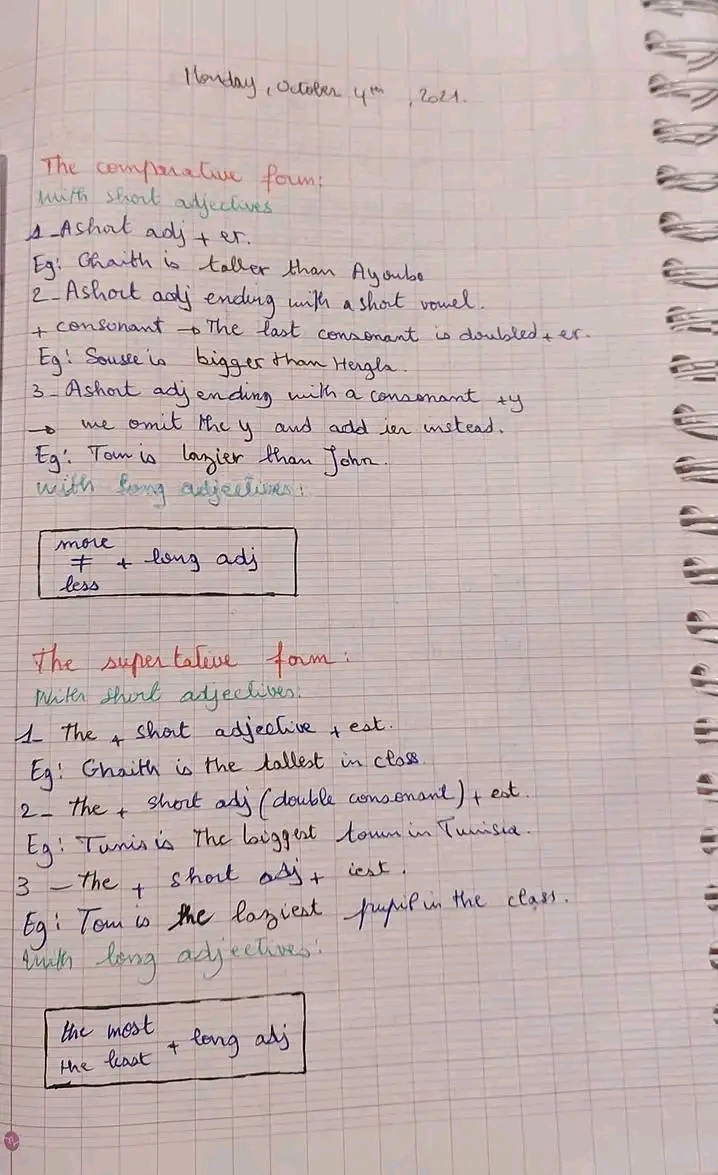 Monday, October 4th, 2021.
The comparative form:
With short adjectives
1_A short adj + er.
Eg: Ghaith is taller than Ayoub.
2_A short adj ending with a short vowel.
+ consonant → The last consonant is doubled + er.
Eg: Sousse is bigger than Hergla.
3_A short adj ending with a consonant + y
→ we omit the y and add ier instead.
Eg: Tom is lazier than John.
With long adjectives:
more
≠ + long adj
less
The supertative form:
With short adjectives:
1_ the + short adjective + est.
Eg: Ghaith is the tallest in class.
2_ the + short adj (double consonant) + est.
Eg: Tunis is The biggest town in Tunisia.
3 _ the + short adj + iest.
Eg: Tom is the laziest pupil in the class.
With long adjectives:
the most
+ long adj
the least